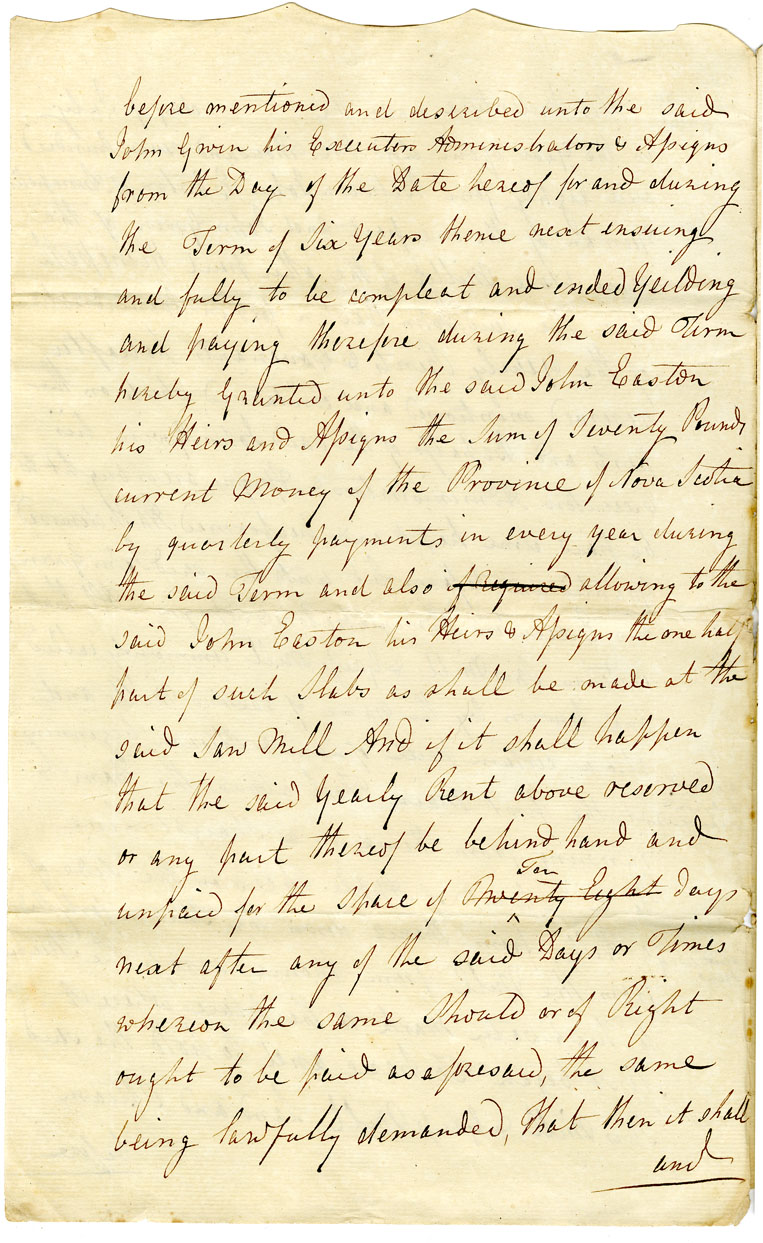 before mentioned and described unto the said
John Gwin his Executors Administrators & Assigns
from the Day of the Date hereof for and during
the Term of Six Years thence next ensuing
and fully to be compleat and ended Yeilding
and paying therefore during the said Term
hereby Granted unto the said John Easton
his Heirs and Assigns the Sum of Seventy Pounds
current Money of the Province of Nova Scotia
by quarterly payments in every year during
the said Term and also if required allowing to the
said John Easton his Heirs & Assigns the one half
part of such Slabs as shall be made at the
said Saw Mill And if it shall happen
that the said Yearly Rent above reserved
or any part thereof be behind hand and
Ten
unpaid for the Space of Twenty Eight days
next after any of the said Days or Times
whereon the same Should or of Right
ought to be paid as aforesaid, the same
being lawfully demanded, That then it shall
and